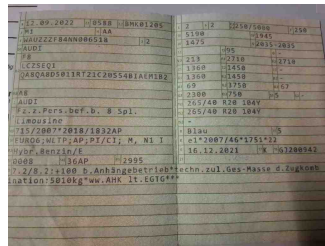 13.09.2022 0588 BMK01205
M1 AA
WAUZZZF84NN006510 2
AUDI
F8
LCZSEQ1
QABQA8D5011RT21C20554BIAEM1B2
A8
AUDI
Fz.z.Pers.bef.b. 8 Spl.
Limousine
715/2007*2018/1832AP
EURO6;WLTP;AP;PI/CI; M, N1 I
Hybr.Benzin/E
0008 36AP 2995
7.2/8.2:+100 b.Anhängebetrieb*techn.zul.Ges-Masse d.Zugkomb
ination:5010kg*ww.AHK lt.EGTG***
2 2 250/5000 250
5190 1945
1475 2035-2035
- 95 -
213 2710 2710
1360 1450 -
1360 1450 -
69 3750 67
2300 750 5 -
265/40 R20 104Y
265/40 R20 104Y
-
Blau 5
e1*2007/46*1751*22
16.12.2021 K